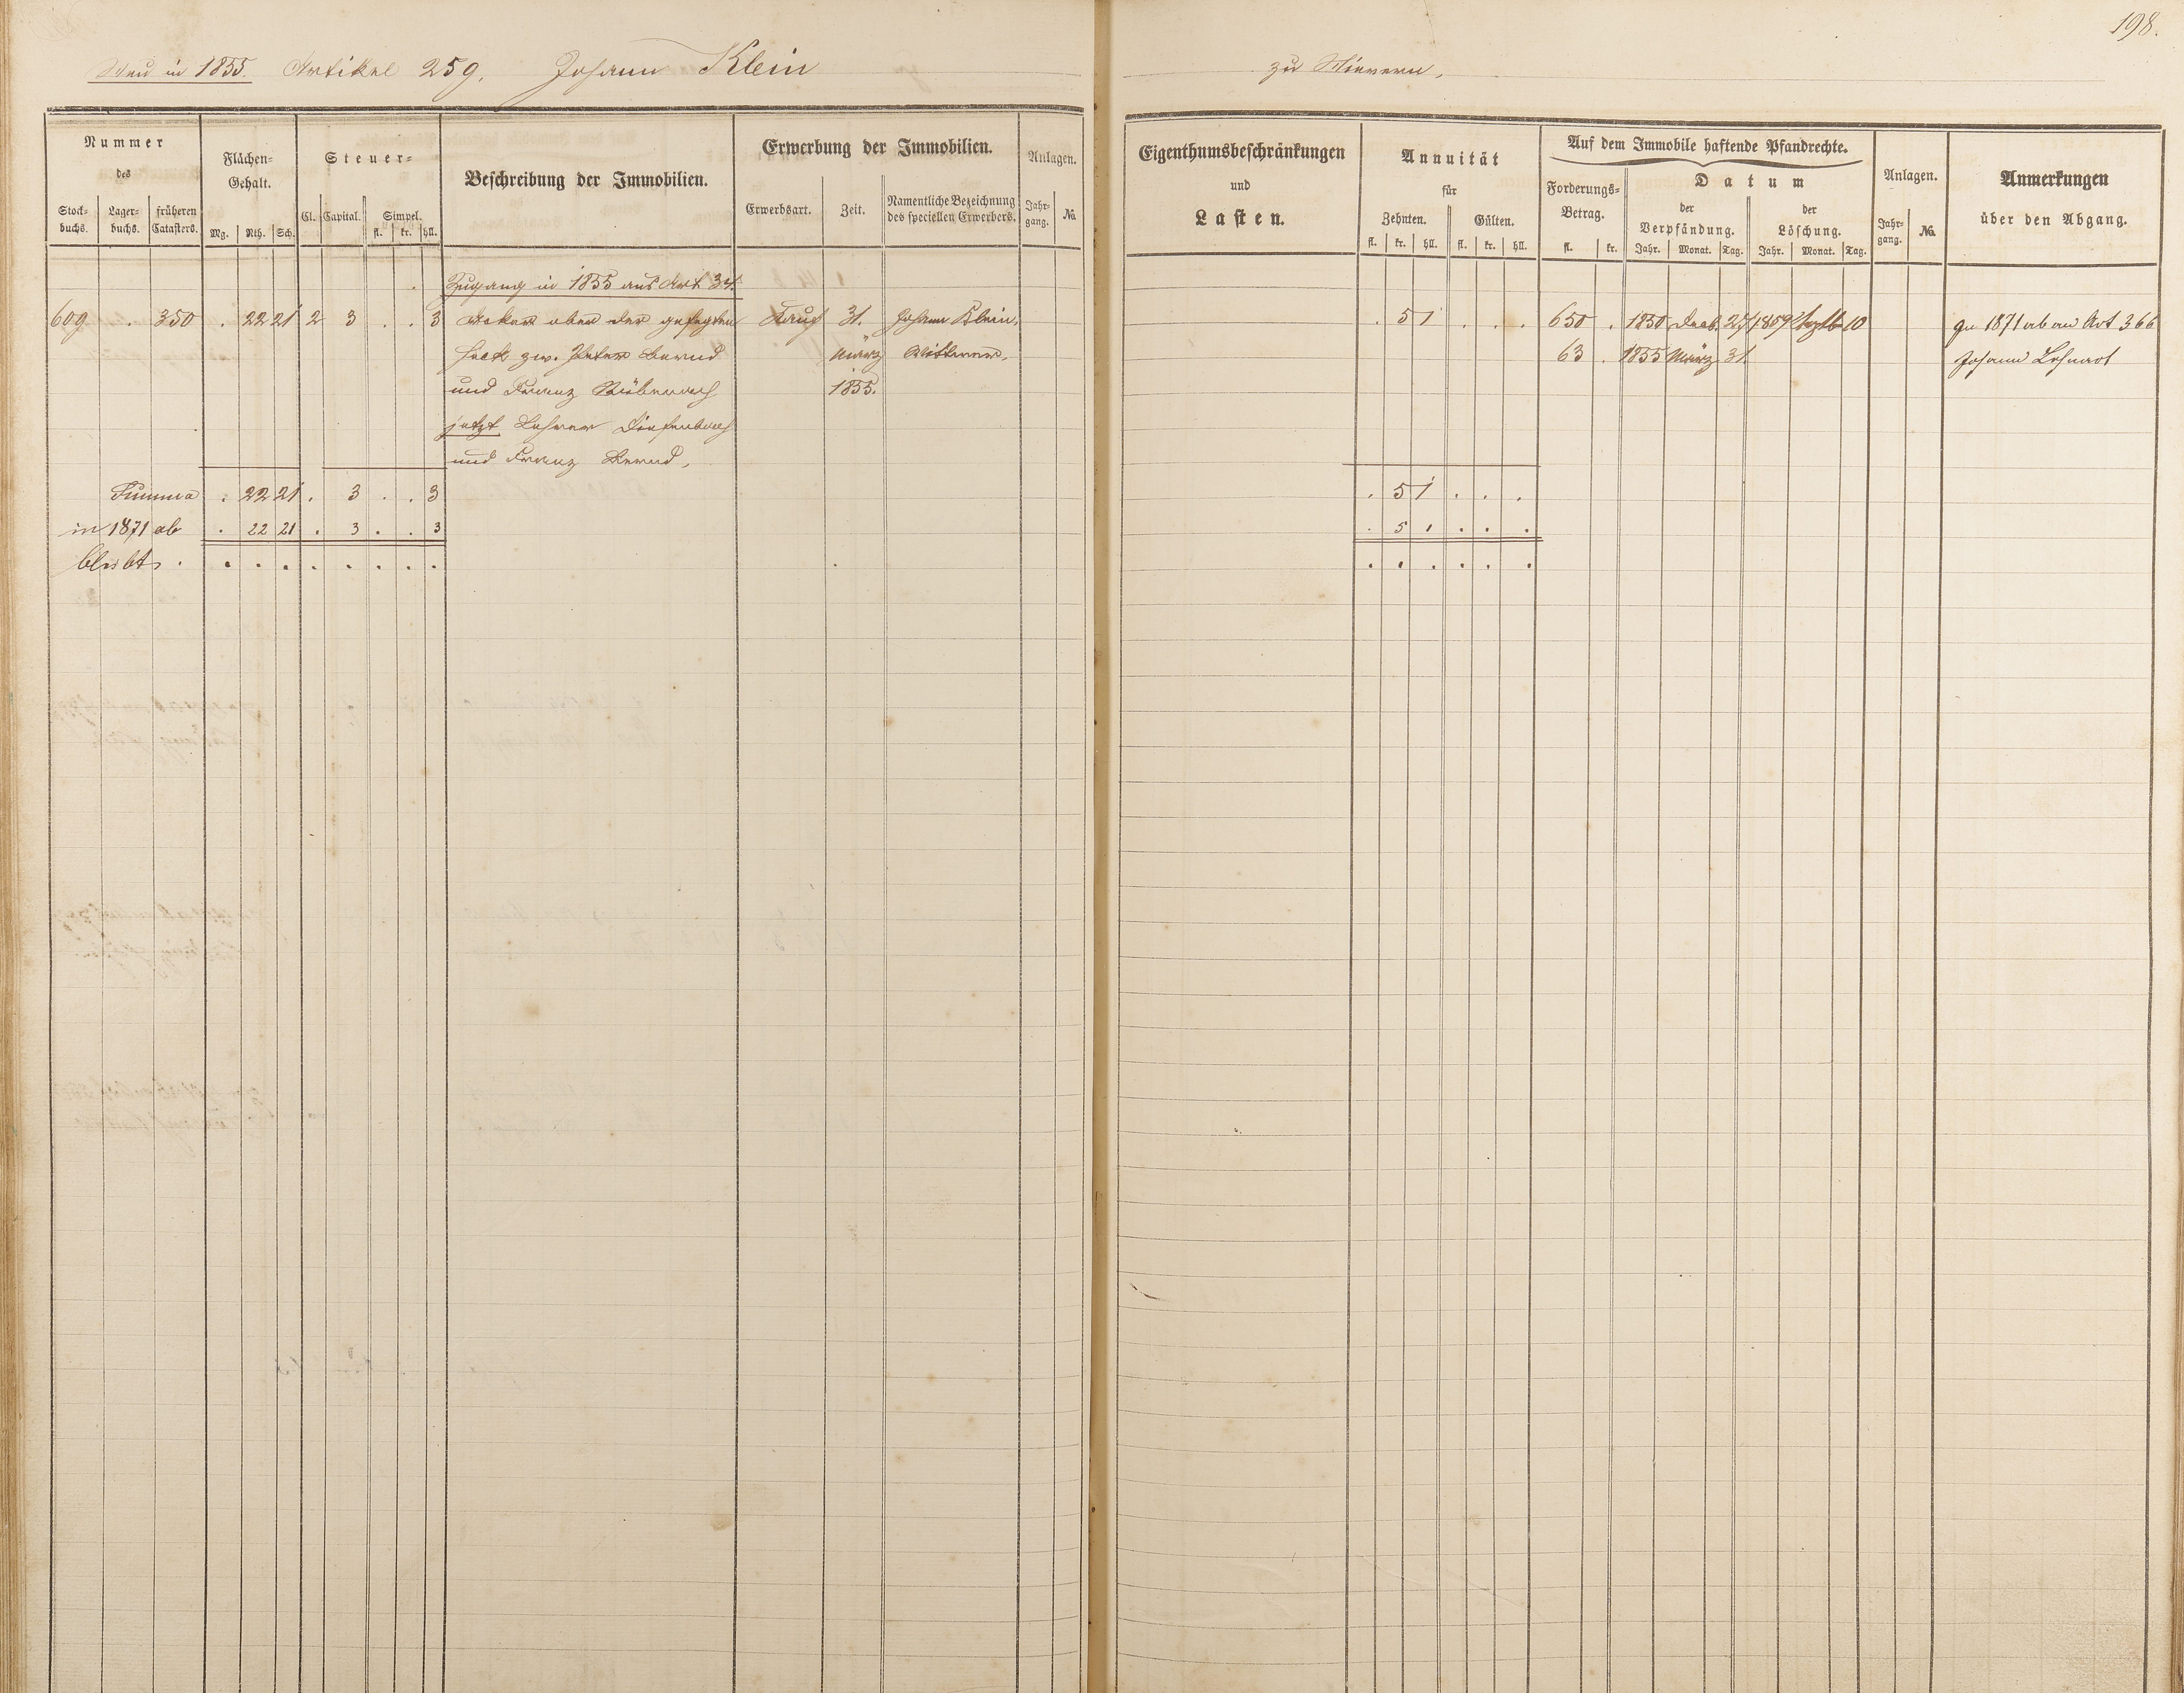 198.
Neu in 1855. Artikel 259. Johann Klein zu Nievern.
Nummer
des
Stock-
buchs.
Lager-
buchs.
früheren
Catasters.
Flächen-
Gehalt.
Mg. Rth. Sch.
Steuer-
Cl. Capital. Simpel.
fl. kr. hll.
Beschreibung der Immobilien.
Erwerbung der Immobilien.
Erwerbsart. Zeit.
Namentliche Bezeichnung
des speciellen Erwerbers.
Anlagen.
Jahr-
gang.
No.
Eigenthumsbeschränkungen
und
Lasten.
Annuität
für
Zehnten. Gülten.
fl. kr. hll. fl. kr. hll.
Auf dem Immobile haftende Pfandrechte.
Forderungs-
Betrag.
fl. kr.
Datum
der
Verpfändung.
Jahr. Monat. Tag.
der
Löschung.
Jahr. Monat. Tag.
Anlagen.
Jahr-
gang.
No.
Anmerkungen
über den Abgang.
Zugang in 1855 aus Art. 34.
609 . 350 . 22 21 2 3 . . 3 Acker ober der Kauf 31. Johann Klein, . 5 1 . . . 650 . 1850 27 1859 10 in 1871 ab an Art 366
zw. Peter Bernd März Wittwer. 63 . 1855 März 31. Johann
und Franz 1855.
jetzt Lehrer Diefenbach
und Franz Bernd.
Summa . 22 21 . 3 . . 3 . 5 1 . . .
in 1871 ab . 22 21 . 3 . . 3 . 5 1 . . .
bleibt . . . . . . . . . . . . . . .